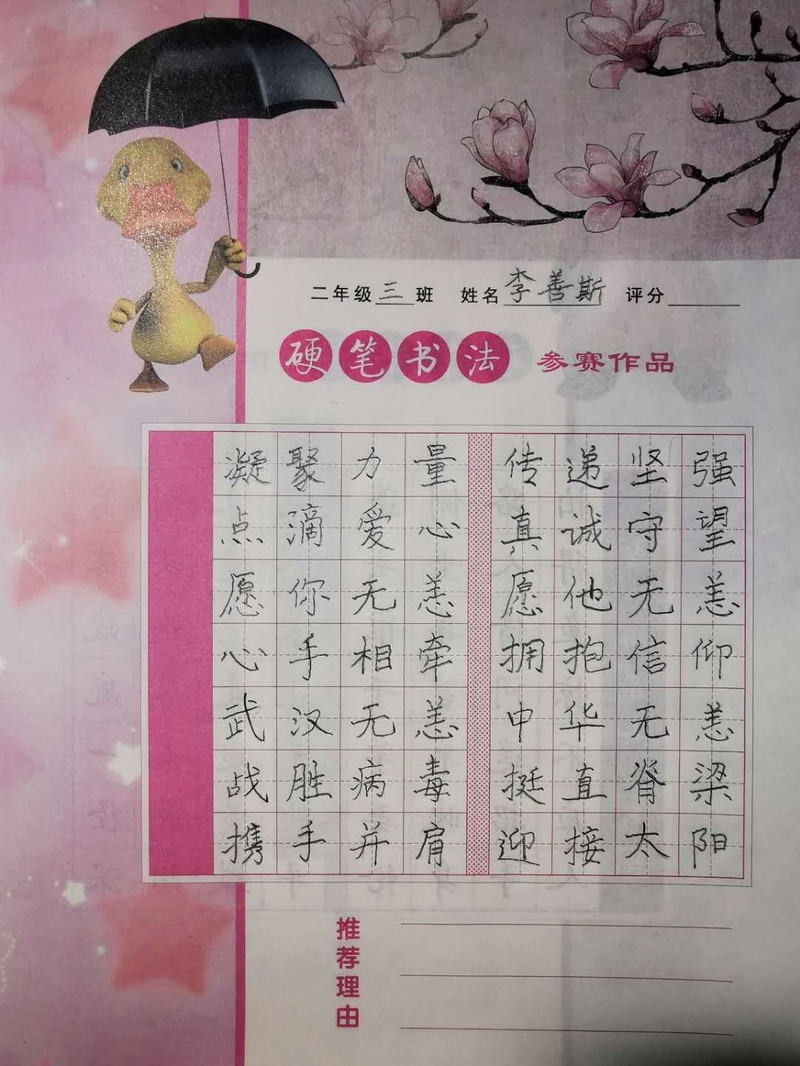 二年级三班 姓名李善斯 评分
硬笔书法 参赛作品
凝聚力量 传递坚强
点滴爱心 真诚守望
愿你无恙 愿他无恙
心手相牵 拥抱信仰
武汉无恙 中华无恙
战胜病毒 挺直脊梁
携手并肩 迎接太阳
推荐理由